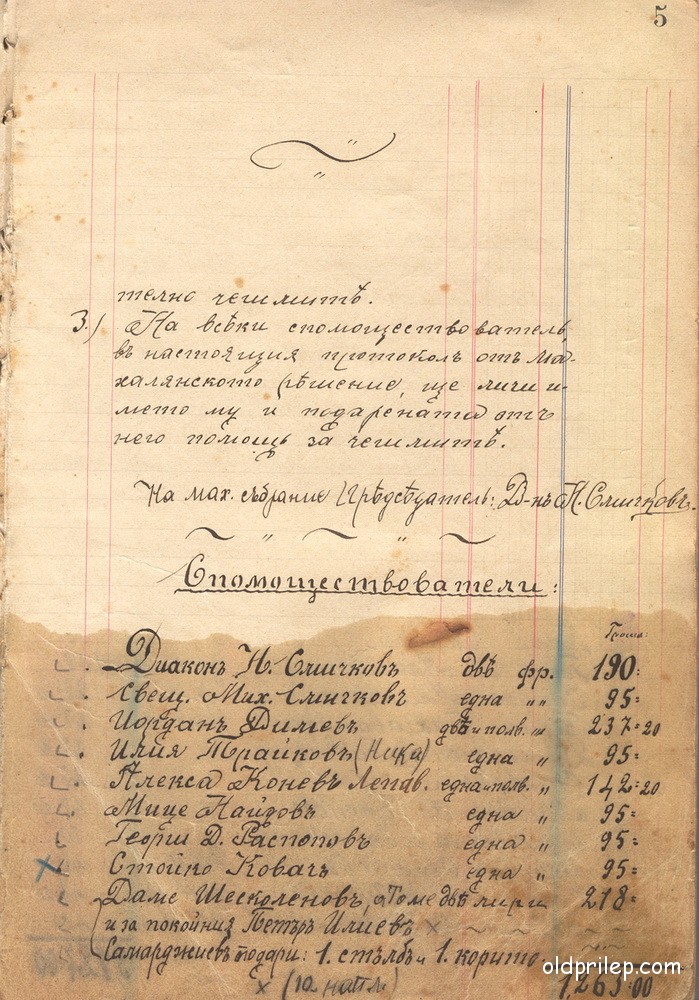 5
телно чешмитѣ.
3.) На всѣки спомоществователь,
въ настоящия протоколъ отъ Ма-
халянското рѣшение, ще личи и-
мето му и подарената отъ
него помощь за чешмитѣ.
На мах. събрание Прѣдсѣдатель: Д-нъ Н. Смичковъ.
Спомоществователи:
Гроша:
Дяконъ Н. Смичковъ двѣ фр. 190=
Свещ. Мих. Смичковъ една „ „ 95=
Иорданъ Димевъ двѣ и полв. „ 237=20
Илия Трайковъ (Ника) една „ 95=
Алекса Коневъ Лепав. една и полв. „ 142=20
Мице Найдовъ една „ 95=
Георги Д. Распоповъ една „ 95=
Стойко Ковачъ една „ 95=
Даме Шесколеновъ, Томе двѣ лири 218=
и за покойния Петъръ Илиевъ x
Самарджиевъ подари: 1. стълбъ и 1. корито.
x 1263=00
oldprilep.com